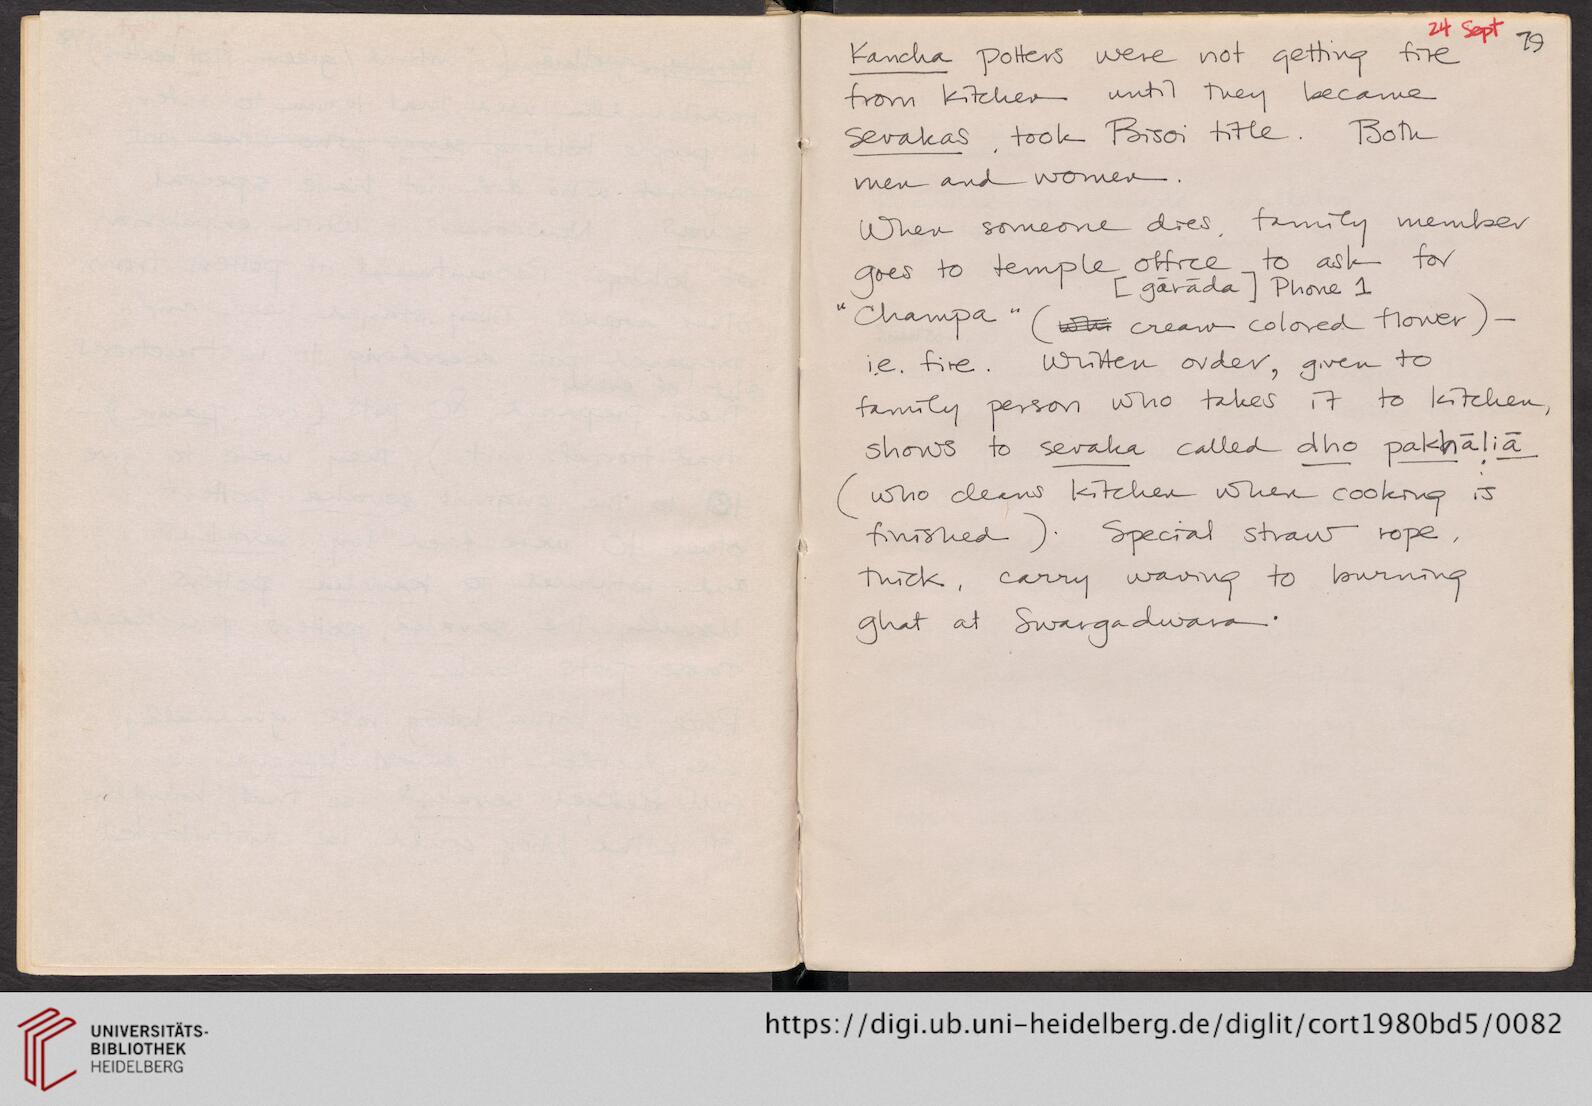 24 Sept 79
Kancha potters were not getting fire
from kitchen until they became
sevakas, took Bisoi title. Both
men and women.
When someone dies, family member
goes to temple office to ask for
[gārāda] Phone 1
"Champa" ( cream colored flower) –
i.e. fire. Written order, given to
family person who takes it to kitchen,
shows to sevaka called dho pakhāḷiā
(who cleans kitchen when cooking is
finished). Special straw rope,
thick, carry waving to burning
ghat at Swargadwara.
UNIVERSITÄTS-
BIBLIOTHEK
HEIDELBERG
https://digi.ub.uni-heidelberg.de/diglit/cort1980bd5/0082